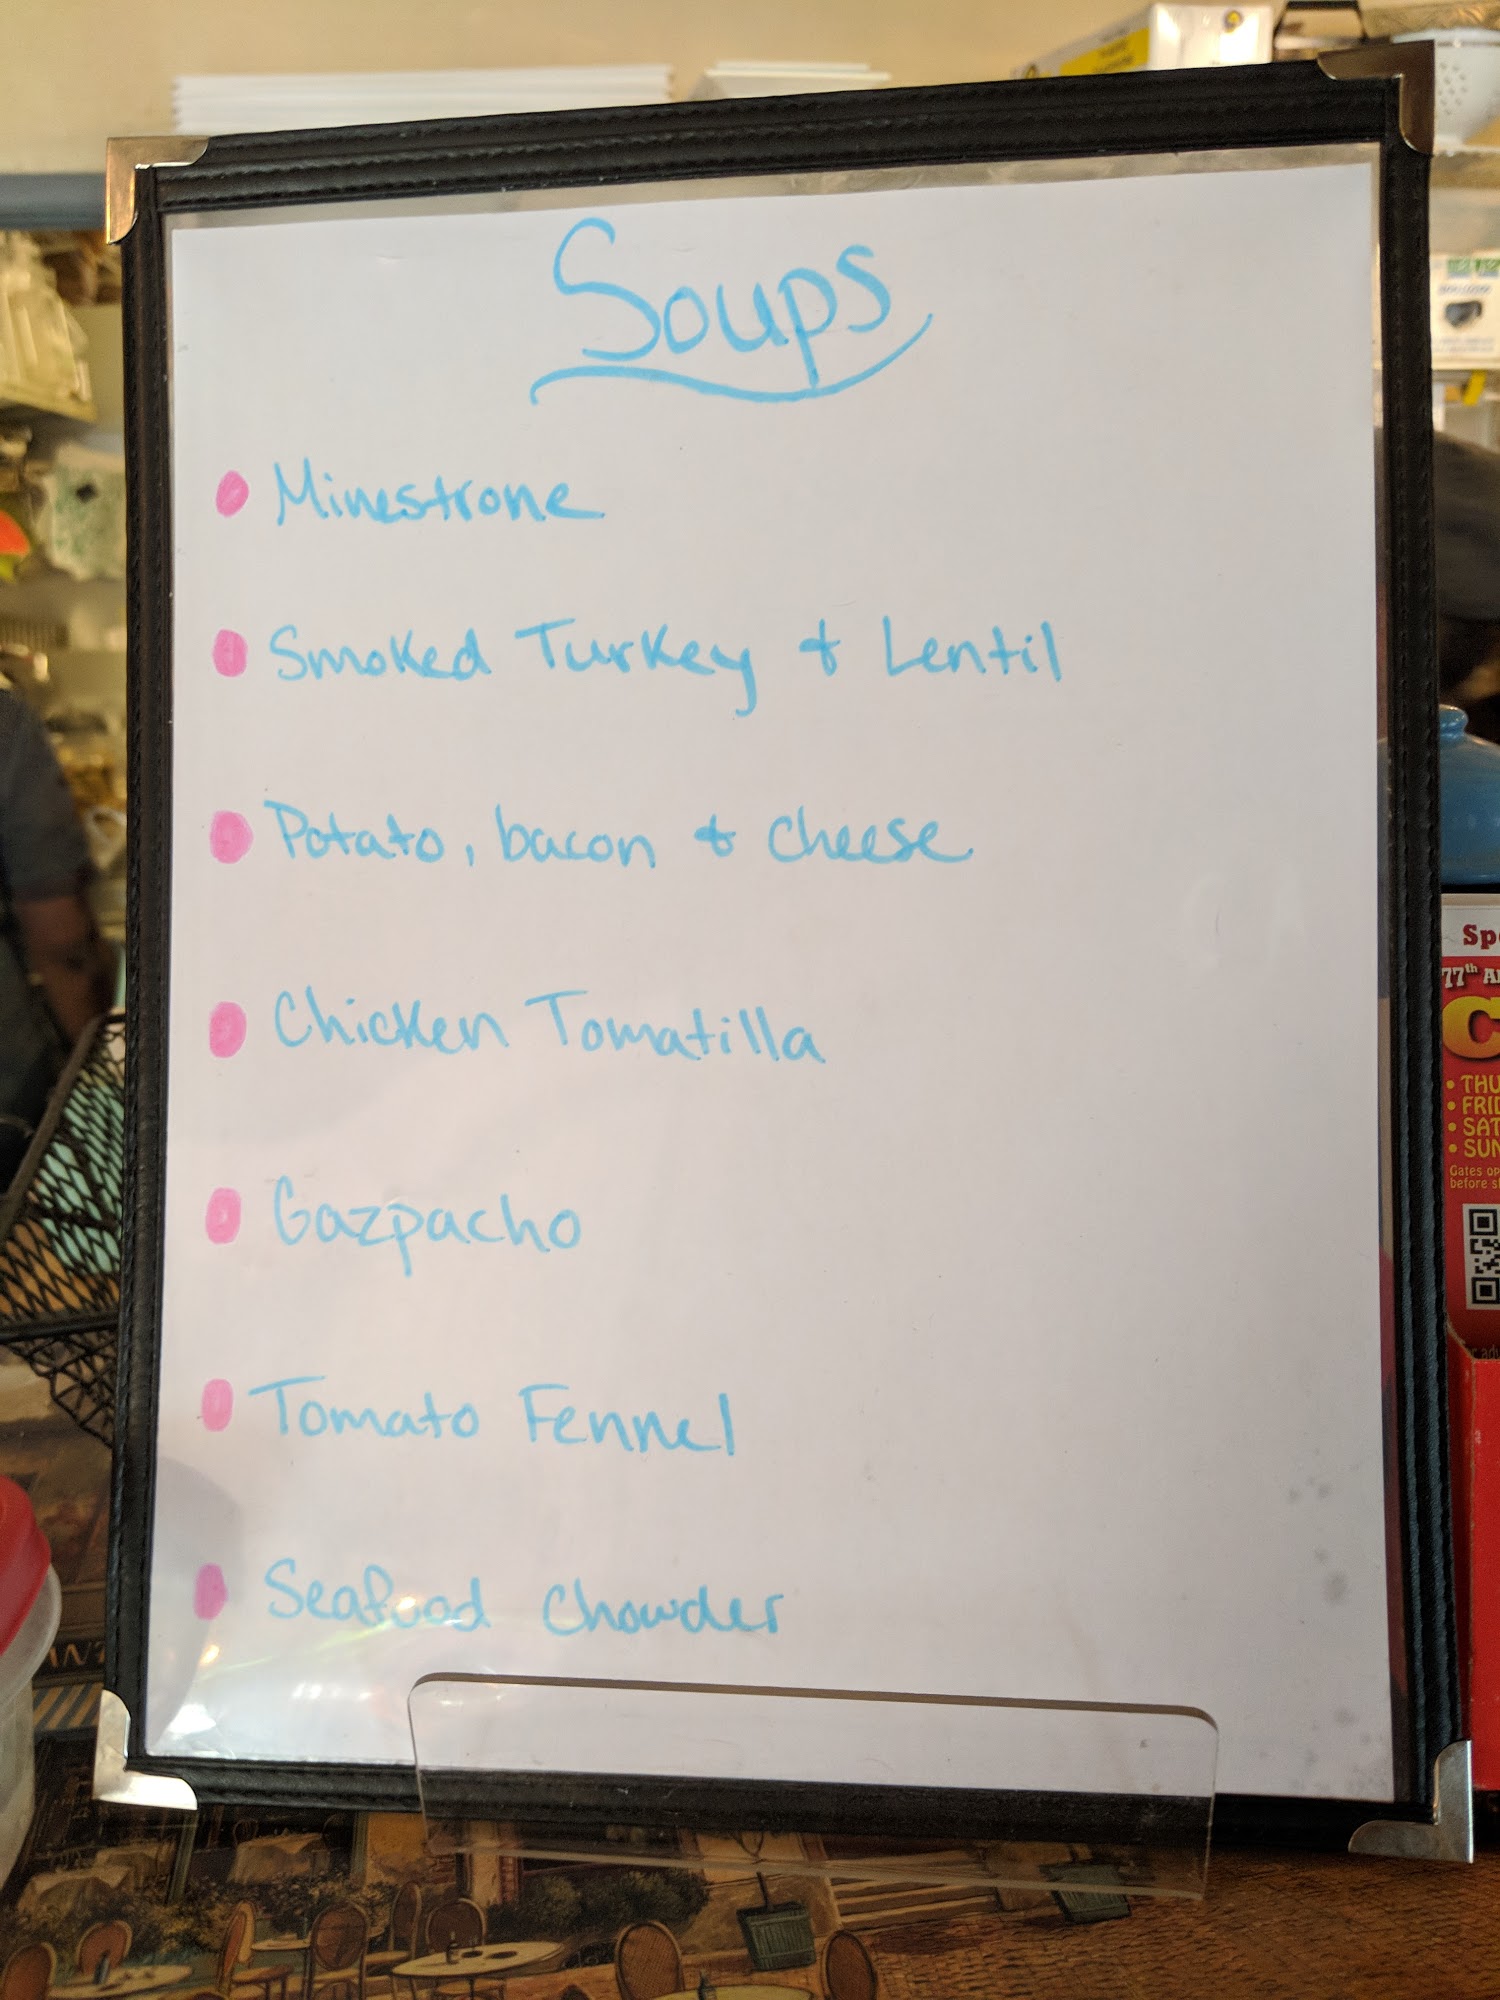 Soups
• Minestrone
• Smoked Turkey & Lentil
• Potato, bacon & cheese
• Chicken Tomatilla
• Gazpacho
• Tomato Fennel
• Seafood Chowder
77th
• THU
• FRI
• SAT
• SUN
Gates
before